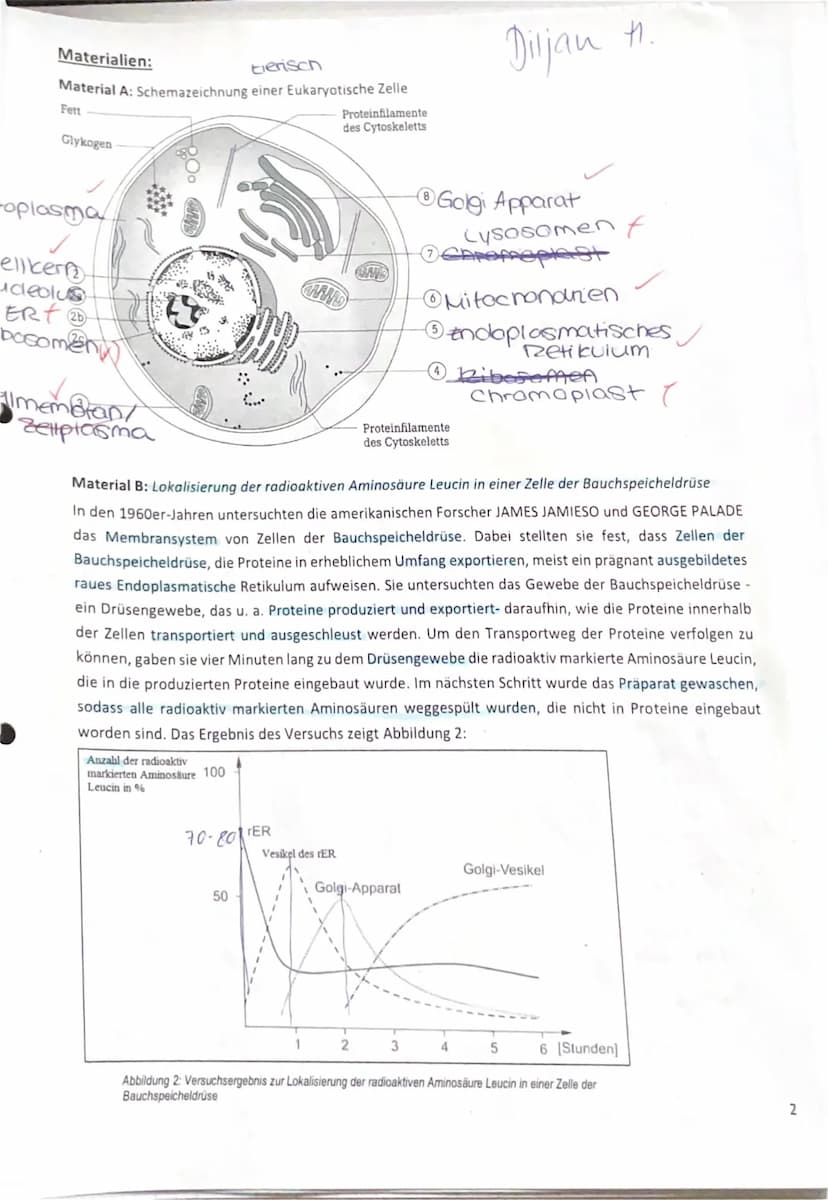 Diljan H.
Materialien:
tierisch
Material A: Schemazeichnung einer Eukaryotische Zelle
Fett
Glykogen
Proteinfilamente
des Cytoskeletts
oplasma
ellkern
ucleolus
2b
ER
bosomen
3
llmembran/
Zellplasma
8 Golgi Apparat
Lysosomen
7 Chromoplast
6 Mitocrondrien
5 Endoplasmatisches
Retikulum
4 Ribosomen
Chromoplast
Proteinfilamente
des Cytoskeletts
Material B: Lokalisierung der radioaktiven Aminosäure Leucin in einer Zelle der Bauchspeicheldrüse
In den 1960er-Jahren untersuchten die amerikanischen Forscher JAMES JAMIESO und GEORGE PALADE
das Membransystem von Zellen der Bauchspeicheldrüse. Dabei stellten sie fest, dass Zellen der
Bauchspeicheldrüse, die Proteine in erheblichem Umfang exportieren, meist ein prägnant ausgebildetes
raues Endoplasmatische Retikulum aufweisen. Sie untersuchten das Gewebe der Bauchspeicheldrüse -
ein Drüsengewebe, das u. a. Proteine produziert und exportiert- daraufhin, wie die Proteine innerhalb
der Zellen transportiert und ausgeschleust werden. Um den Transportweg der Proteine verfolgen zu
können, gaben sie vier Minuten lang zu dem Drüsengewebe die radioaktiv markierte Aminosäure Leucin,
die in die produzierten Proteine eingebaut wurde. Im nächsten Schritt wurde das Präparat gewaschen,
sodass alle radioaktiv markierten Aminosäuren weggespült wurden, die nicht in Proteine eingebaut
worden sind. Das Ergebnis des Versuchs zeigt Abbildung 2:
Anzahl der radioaktiv
markierten Aminosäure
Leucin in %
100
70-80
rER
Vesikel des rER
Golgi-Apparat
Golgi-Vesikel
50
1 2 3 4 5 6 [Stunden]
Abbildung 2: Versuchsergebnis zur Lokalisierung der radioaktiven Aminosäure Leucin in einer Zelle der
Bauchspeicheldrüse
2